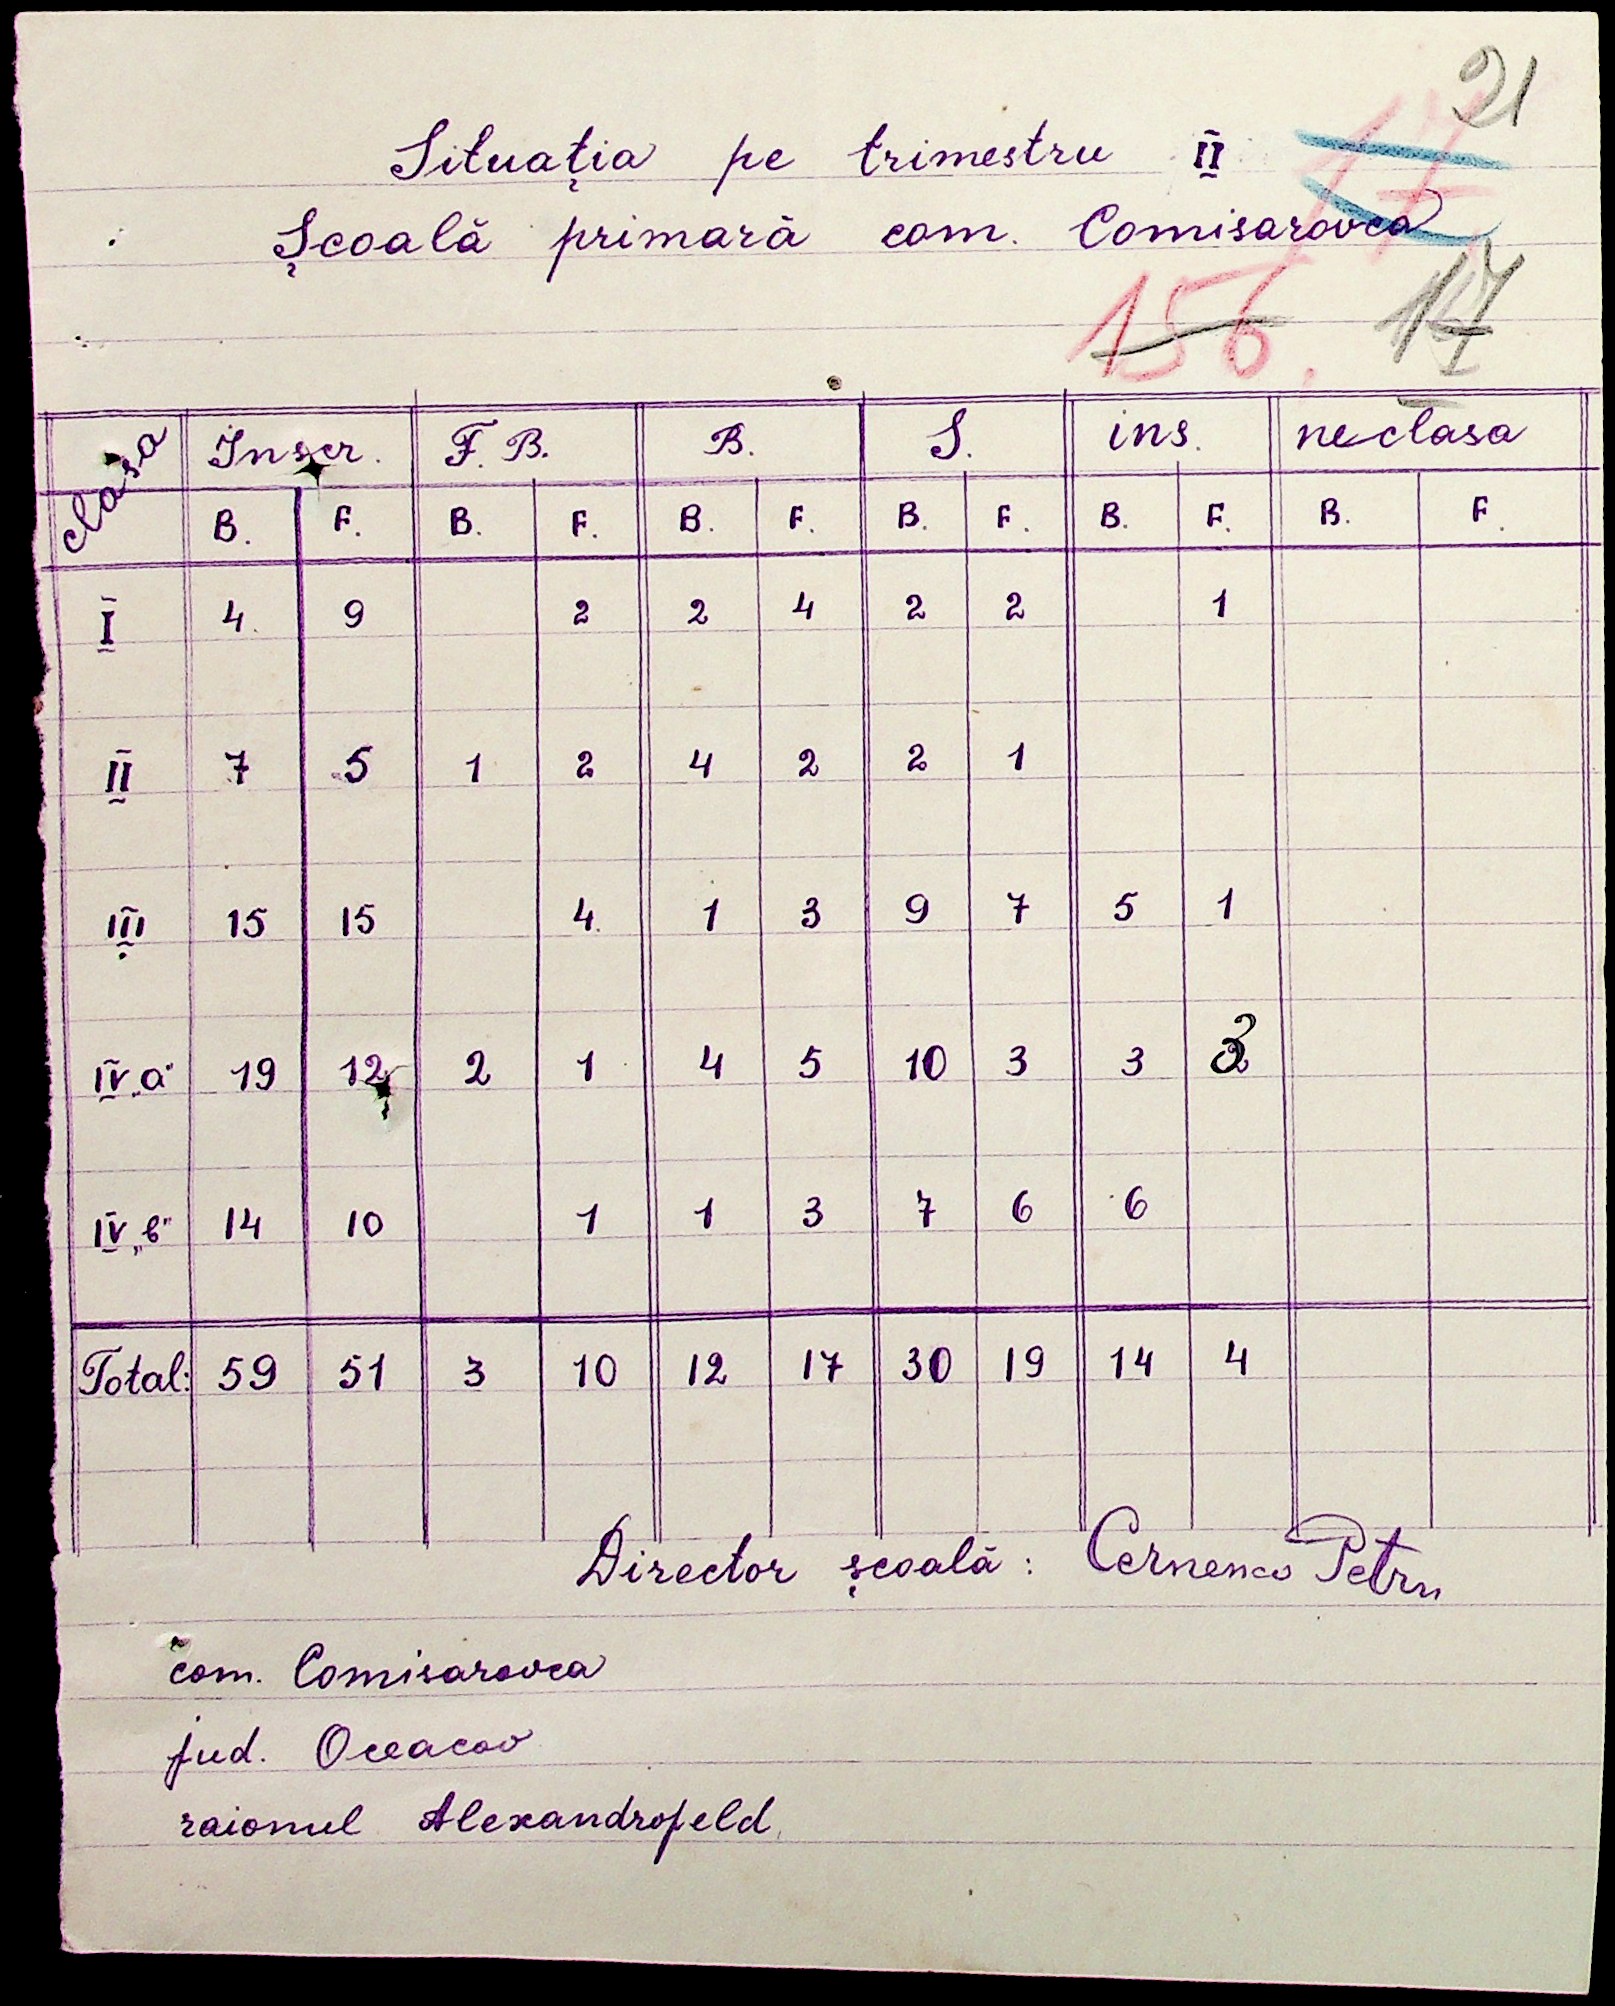 21
Situaţia pe trimestru II
17
Şcoală primară com. Comisarovca
156. 17
clasa Inscr. F. B. B. S. ins. neclasa
B. F. B. F. B. F. B. F. B. F. B. F.
I 4 9 2 2 4 2 2 1
II 7 5 1 2 4 2 2 1
III 15 15 4 1 3 9 7 5 1
IV „a" 19 12 2 1 4 5 10 3 3
IV „b" 14 10 1 1 3 7 6 6
Total: 59 51 3 10 12 17 30 19 14 4
Director şcoală: Cernenco Petru
com. Comisarovca
jud. Oceacov
raionul Alexandrofeld